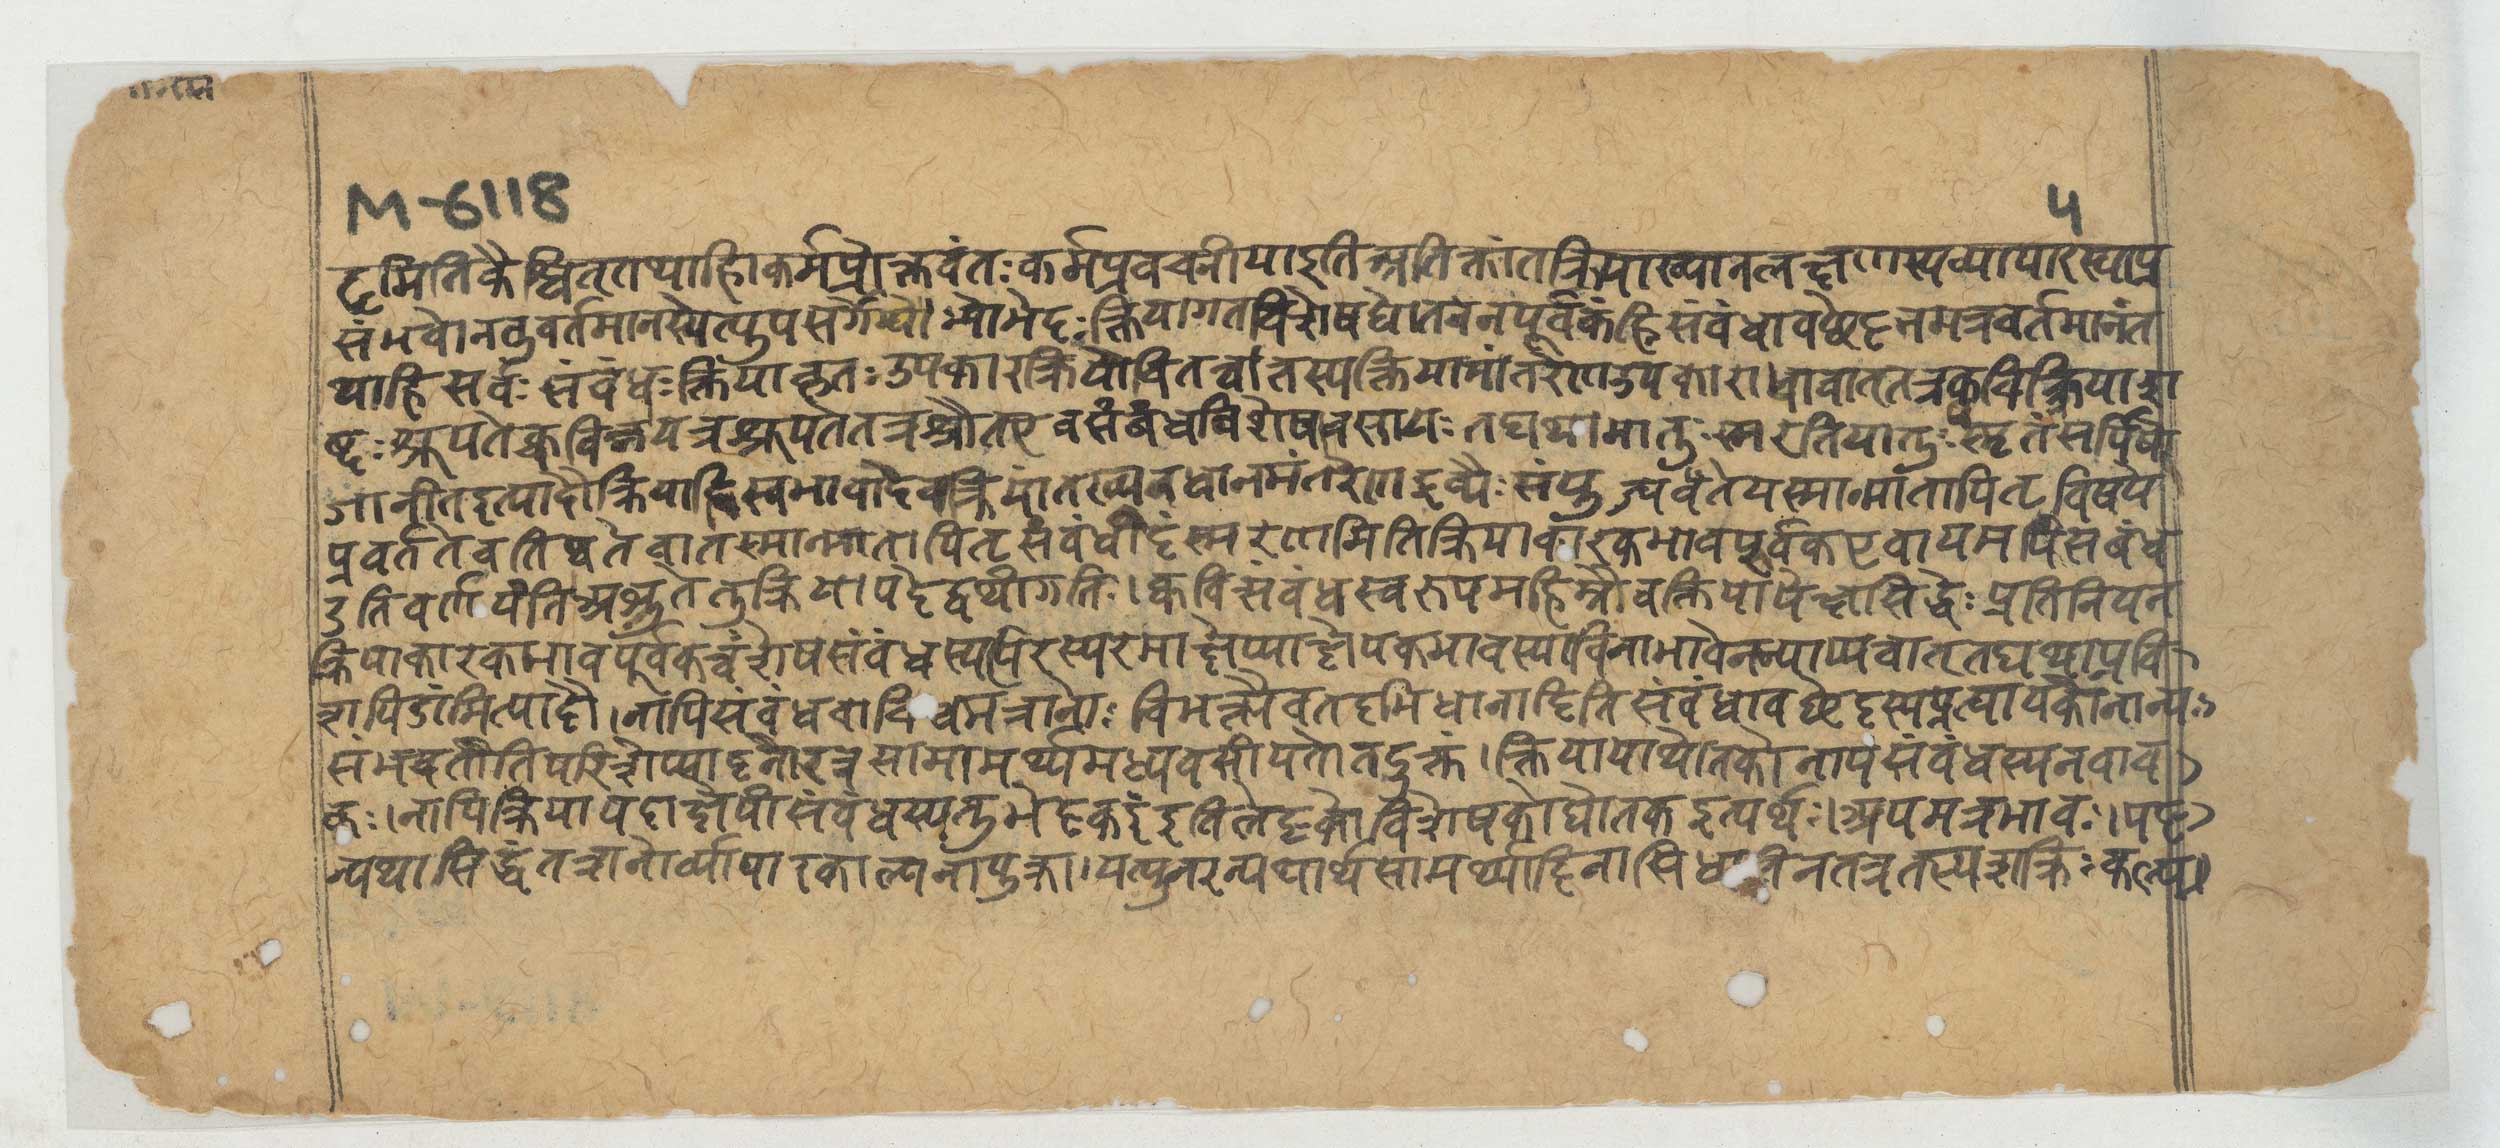 M-6118
५
दृमितिकैश्चित्तथाहिकर्मप्रोक्तवंतःकर्मप्रवचनीयाइतिअतिक्रांतक्रियाख्यानलक्षणस्यव्यापारस्याप्र
संभवानतुवर्तमानस्येत्युपसर्गेभ्योभेदःक्रियागतविशेषद्योतनेनपूर्वकंहिसंबंधावछेदनमत्रवर्तमानंत
थाहिसर्वःसंबंधःक्रियाकृतःउपकारक्रियाभावितत्वात्तस्यक्रियामांतरेणउपकाराभावात्तत्रक्वचित्क्रियाश
ब्दःश्रूयतेक्वचिन्नयत्रश्रूयतेतत्रश्रौतएवसंबंधविशेषावसायःतद्यथामातुःस्मरतिमातुःस्मृतंसर्पिषो
जानीतइत्यादौक्रियाहिस्वभावादेवक्रियांतरव्यवधानमंतरेणद्रव्यैःसंयुज्यर्वतेयस्मान्मातापितृविषये
प्रवर्ततेवतिष्ठतेवातस्मान्मातापितृसंबंधीदंस्मरणमितिक्रियाकारकभावपूर्वकएवायमपिसबंध
इतिवर्णयंतिअश्रुतेतुक्रियापदेद्वयीगतिः।क्वचित्संबंधस्वरूपमहिम्नैवक्रियापेक्षासिद्धेःप्रतिनियत
क्रियाकारकभावपूर्वकत्वंशेषसंबंधस्यपरिस्परमाक्षेप्याक्षेपकभावस्याविनाभावेनव्याप्यत्वात्तद्यथाप्रवि
शपिंडीमित्यादौ।नापिसंबंधवाचित्वमत्रानोःविभक्त्यैवतदभिधानादितिसंबंधावछेदस्यप्रत्यायकोनान्यः
संभवतीतिपरिशेष्यादनोरत्रसामामर्थ्यमध्यवसीयतेतदुक्तं।क्रियायाद्योतकोनायंसंबंधस्यनवाच
कः।नापिक्रियापदाक्षेपीसंबंधस्यतुभेदकःइतिभेदकोविशेषकोद्योतकइत्यर्थः।अयमत्रभावः।यद
न्यथासिद्धंतत्रानोर्व्यापारकल्पनायुक्ता।यत्पुनरन्यथार्थसामर्थ्यादिनासिध्यतिनतत्रतस्यशक्तिःकल्प्या